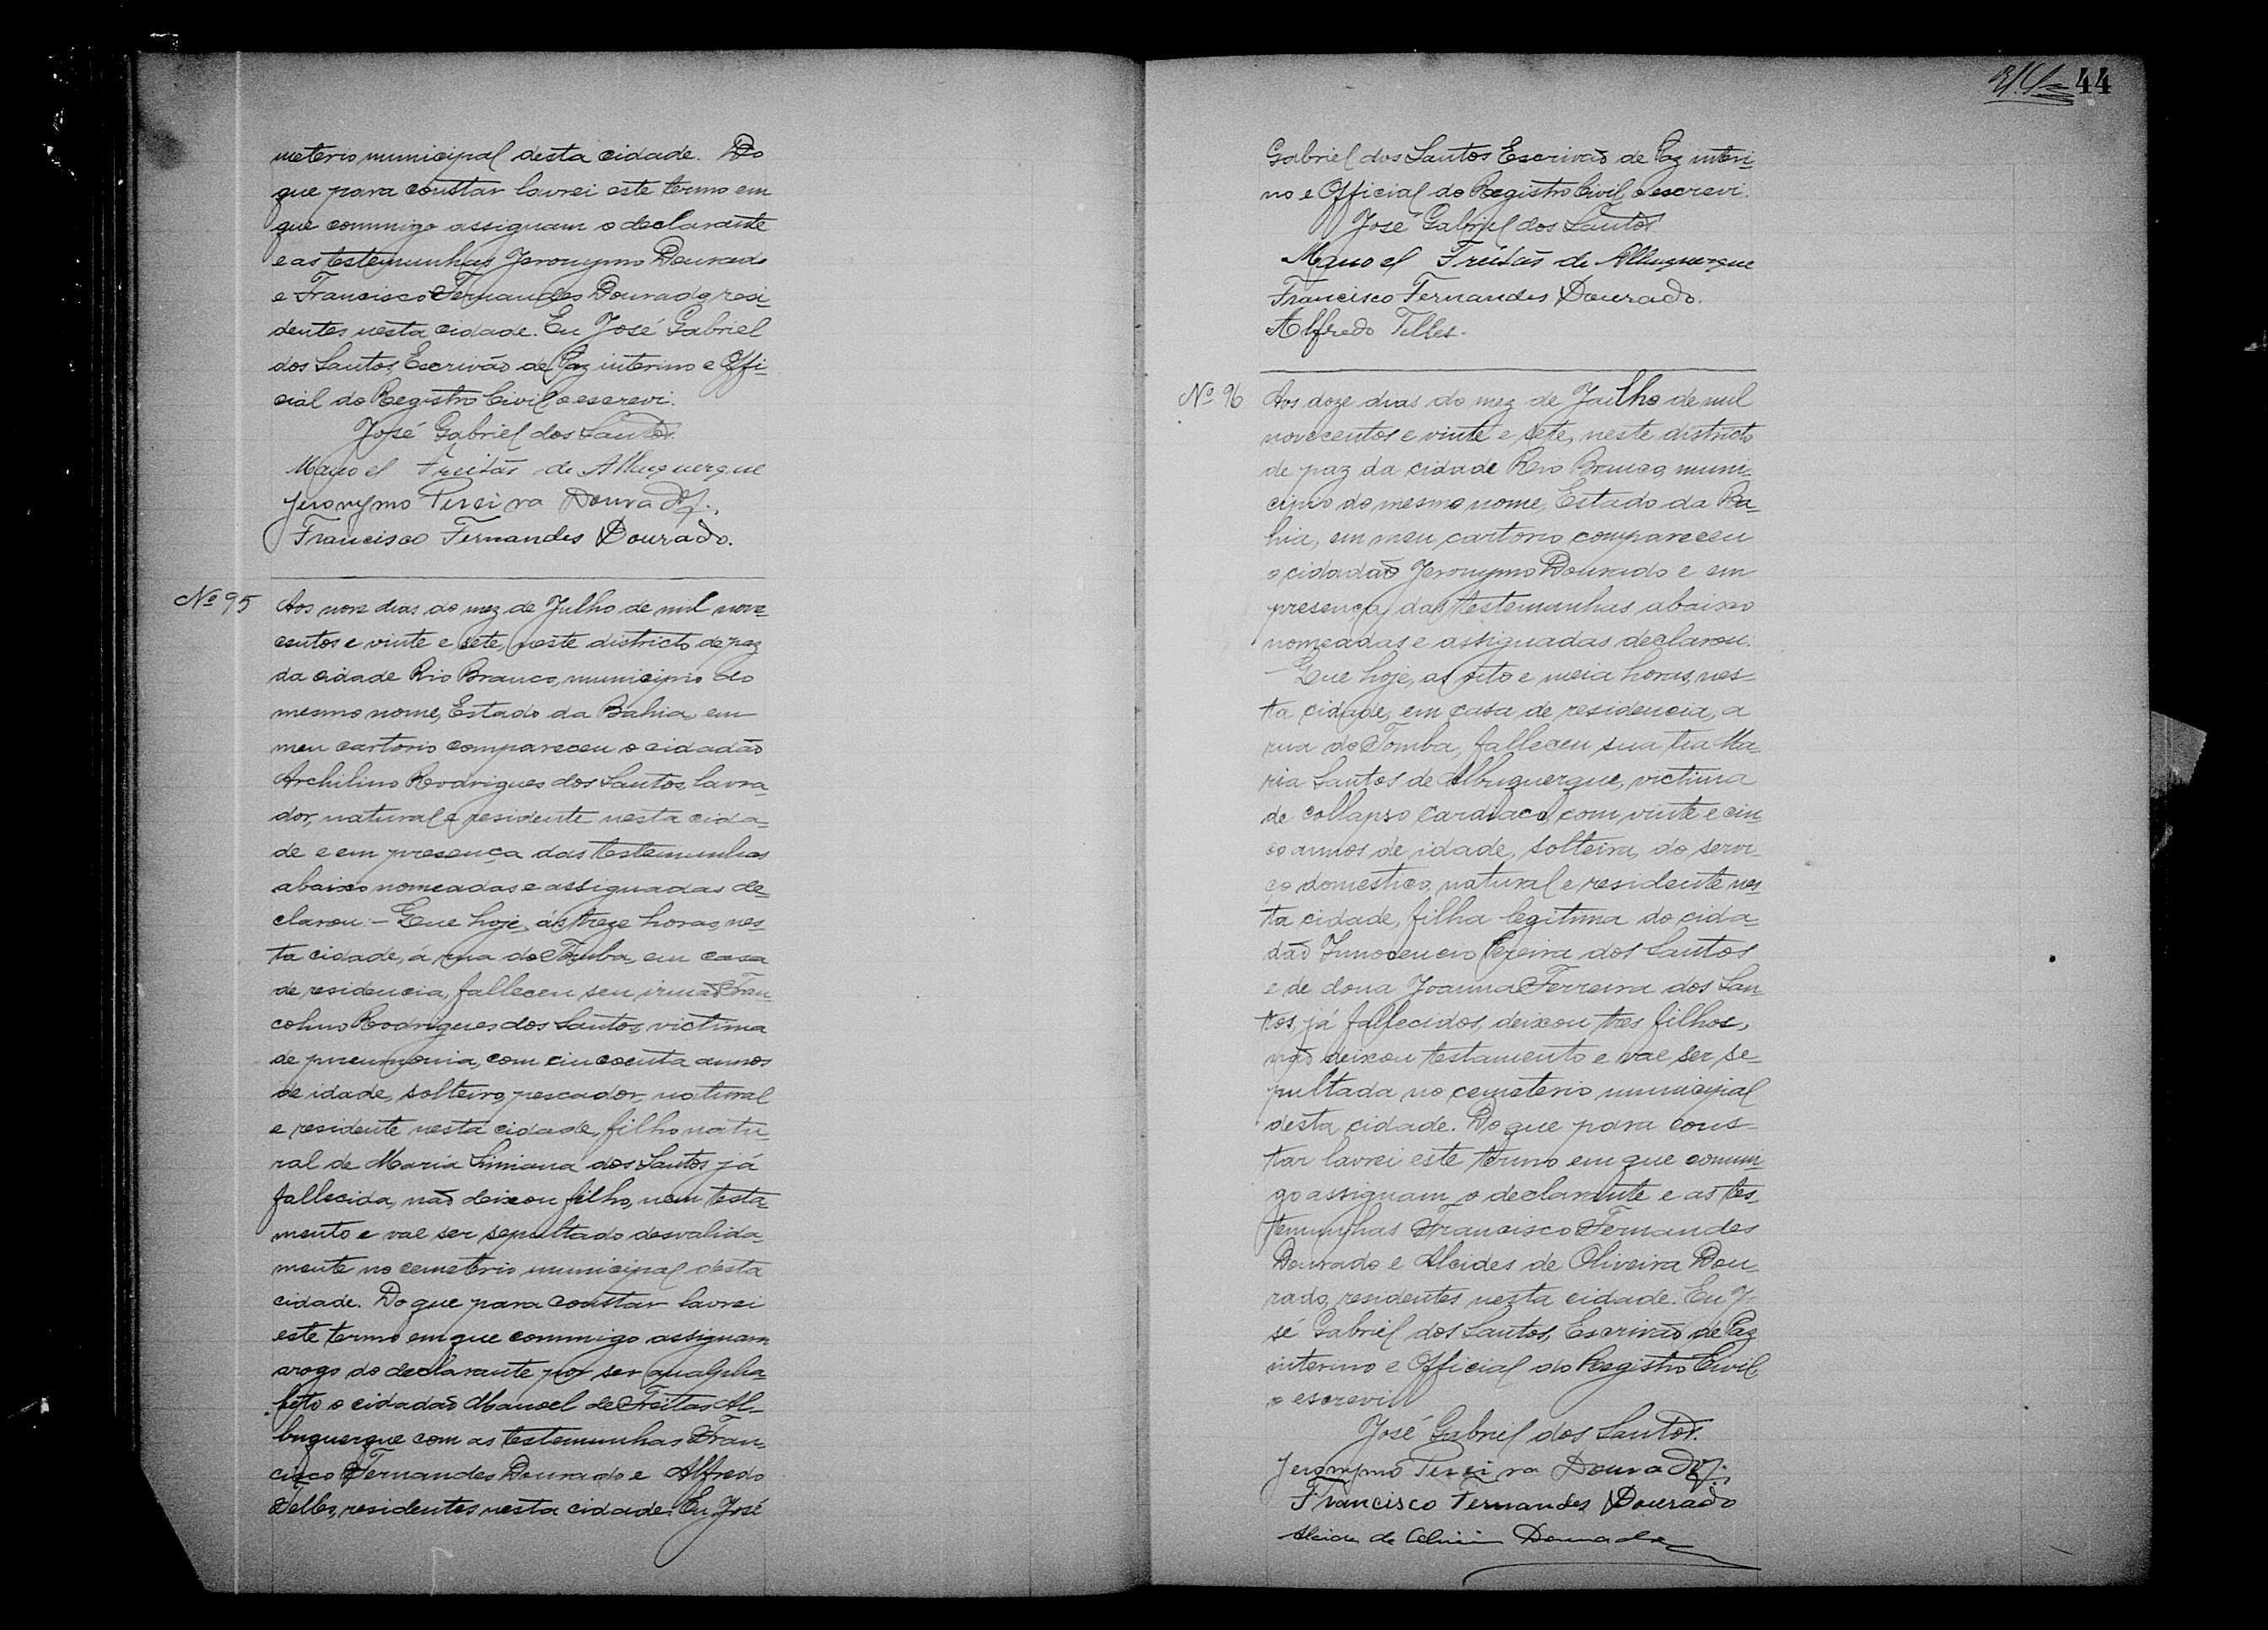 meterio municipal desta cidade. Do
que para constar lavrei este termo em
que commigo assignam o declarante
e as testemunhas Jeronymo Dourado
e Francisco Fernandes Dourado, resi-
dentes nesta cidade. Eu José Gabriel
dos Santos, Escrivão de Paz interino e Offi-
cial do Registro Civil o escrevi.
José Gabriel dos Santos.
Manoel Freitas de Albuquerque
Jeronymo Pereira Dourado
Francisco Fernandes Dourado.
Nº 95 Aos nove dias do mez de Julho de mil nove
centos e vinte e sete, neste districto de paz
da cidade Rio Branco, municipio do
mesmo nome, Estado da Bahia, em
meu cartorio compareceu o cidadão
Archilino Rodrigues dos Santos, lavra-
dor, natural e residente nesta cida-
de e em presença das testemunhas
abaixo nomeadas e assignadas de-
clarou:- Que hoje, ás treze horas, nes-
ta cidade, á rua do Tomba, em casa
de residencia, falleceu seu irmão Fran-
colino Rodrigues dos Santos, victima
de pneumonia, com cincoenta annos
de idade, solteiro, pescador, natural
e residente nesta cidade, filho natu-
ral de Maria Siniana dos Santos, já
fallecida, não deixou filho, nem testa-
mento e vae ser sepultado desvalida-
mente no cemeterio municipal desta
cidade. Do que para constar lavrei
este termo em que commigo assignam
arogo do declarante por ser analpha-
beto o cidadão Manoel de Freitas Al-
buquerque com as testemunhas Fran-
cisco Fernandes Dourado e Alfredo
Telles, residentes nesta cidade. Eu José
44
Gabriel dos Santos Escrivão de Paz interi-
no e Official do Registro Civil o escrevi.
José Gabriel dos Santos
Manoel Freitas de Albuquerque
Francisco Fernandes Dourado.
Alfredo Telles.
Nº 96 Aos doze dias do mez de Julho de mil
novecentos e vinte e sete, neste districto
de paz da cidade Rio Branco, muni-
cipio do mesmo nome, Estado da Ba-
hia, em meu cartorio compareceu
o cidadão Jeronymo Dourado e em
presença das testemunhas abaixo
nomeadas e assignadas declarou:
- Que hoje, as oito e meia horas, nes-
ta cidade, em casa de residencia, a
rua do Tomba, falleceu sua tia Ma-
ria Santos de Albuquerque, victima
de collapso cardiaco, com vinte e cin-
co annos de idade, solteira, do servi-
ço domestico, natural e residente nes-
ta cidade, filha legitima do cida-
dão Innocencio Pereira dos Santos
e de dona Joanna Ferreira dos San-
tos, já fallecidos, deixou tres filhos,
não deixou testamento e vae ser se-
pultada no cemeterio municipal
desta cidade. Do que para cons-
tar lavrei este termo em que commi-
go assignam o declarante e as tes-
temunhas Francisco Fernandes
Dourado e Alcides de Oliveira Dou-
rado, residentes nesta cidade. Eu Jo
sé Gabriel dos Santos, Escrivão de Paz
interino e Official do Registro Civil,
o escrevi
José Gabriel dos Santos.
Jeronymo Pereira Dourado
Francisco Fernandes Dourado
Alcides de Oliveira Dourado